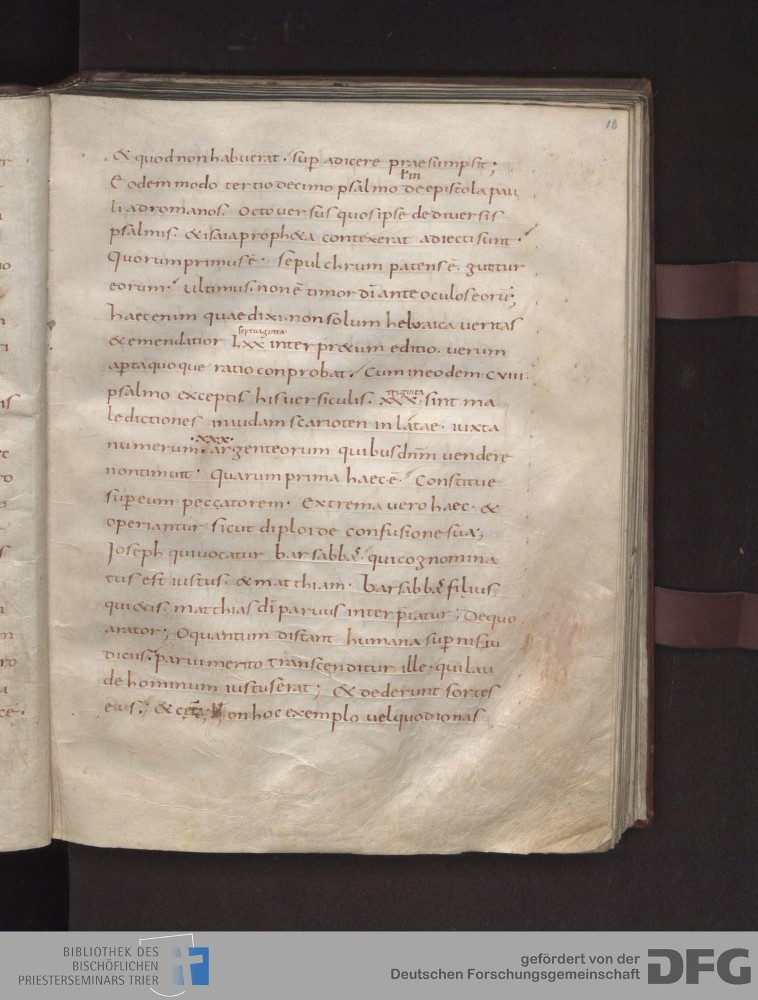 10
& quod non habuerat · sup adicere praesumpsit ;
xiii
Eodem modo tertio decimo psalmo de epistola pau
li ad romanos . Octo versus quos ipse de diversis
psalmis . & isaia proph&a contexerat adiecti sunt .
Quorum primus ē . sepulchrum patens ē . guttur
eorum . ultimus . non ē timor dī ante oculos eorū ;
haec enim quae dixi . non solum hebraica veritas
septuaginta
& emendatior Lxx interpr&um editio . verum
aptaquoque ratio conprobat . Cum in eodem . cviii .
triginta
psalmo exceptis his versiculis . xxx . sint ma
ledictiones in iudam scarioten inlatae . iuxta
.xxx.
numerum . argenteorum quibus dnm vendere
non timuit . Quarum prima haec ē . Constitue
sup eum peccatorem . Extrema vero haec . &
operiantur sicut diploide confusione sua ;
Joseph qui vocatur barsabbą . qui cognomina
tus est iustus . & matthiam . Barsabbą filius
qui&is . matthias dī parvus interp̄tatur ; De quo
arator ; O quantum distant humana supnis iu
diciis . parvi merito transcenditur ille . qui lau
de hominum iustus erat ; & dederunt sortes
eius . & cet̄a . Non hoc exemplo vel quod ionas
BIBLIOTHEK DES
BISCHÖFLICHEN
PRIESTERSEMINARS TRIER
gefördert von der
Deutschen Forschungsgemeinschaft
DFG